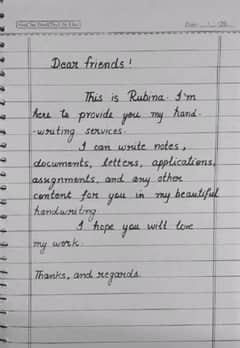 Dear friends!
This is Rubina. I'm
here to provide you my hand-
-writing services.
I can write notes,
documents, letters, applications,
assignments, and any other
content for you in my beautiful
handwriting.
I hope you will love
my work.
Thanks, and regards.